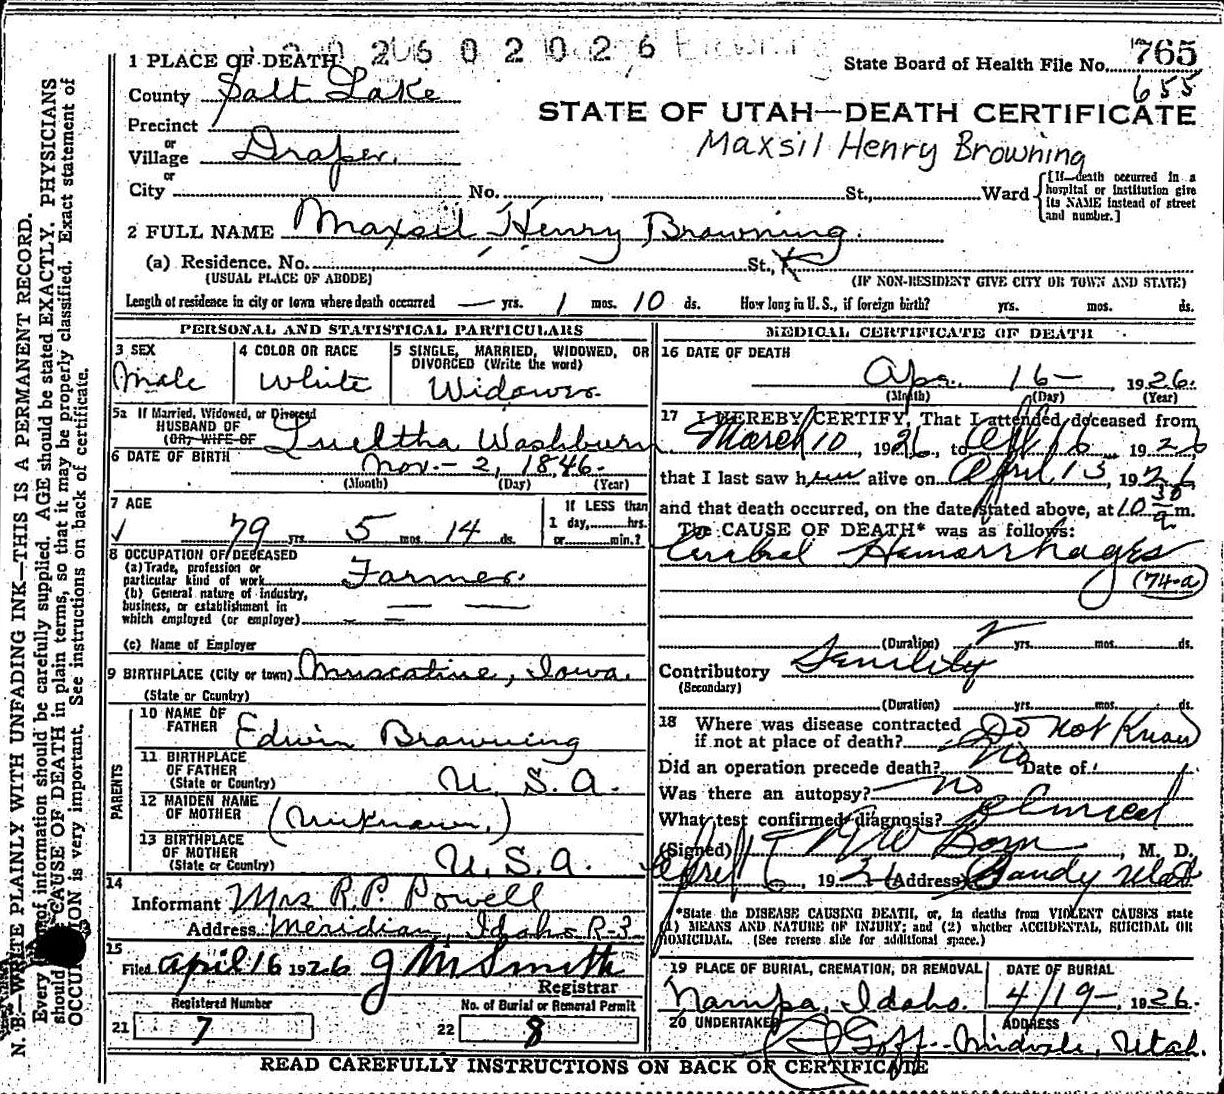 2602026
1 PLACE OF DEATH
State Board of Health File No. 765
County Salt Lake
655
STATE OF UTAH—DEATH CERTIFICATE
Precinct
or
Village Draper.
Maxsil Henry Browning
or
City No. St., Ward
[If death occurred in a hospital or institution give its NAME instead of street and number.]
2 FULL NAME Maxsil Henry Browning.
(a) Residence. No. St.,
(USUAL PLACE OF ABODE) (IF NON-RESIDENT GIVE CITY OR TOWN AND STATE)
Length of residence in city or town where death occurred — yrs. 1 mos. 10 ds. How long in U. S., if foreign birth? yrs. mos. ds.
PERSONAL AND STATISTICAL PARTICULARS
3 SEX
Male
4 COLOR OR RACE
White
5 SINGLE, MARRIED, WIDOWED, OR DIVORCED (Write the word)
Widower.
5a If Married, Widowed, or Divorced
HUSBAND OF
(OR) WIFE OF Washburn
6 DATE OF BIRTH Nov. - 2, 1846.
(Month) (Day) (Year)
7 AGE
79 yrs. 5 mos. 14 ds.
If LESS than
1 day, hrs.
or min.?
8 OCCUPATION OF DECEASED
(a) Trade, profession or
particular kind of work Farmer.
(b) General nature of industry,
business, or establishment in
which employed (or employer)
(c) Name of Employer
9 BIRTHPLACE (City or town) Muscatine, Iowa.
(State or Country)
PARENTS
10 NAME OF
FATHER Edwin Browning
11 BIRTHPLACE
OF FATHER
(State or Country) U. S. A.
12 MAIDEN NAME
OF MOTHER (Unknown.)
13 BIRTHPLACE
OF MOTHER
(State or Country) U. S. A.
14
Informant Mrs R. P. Powell
Address Meridian, Idaho R-3
15
Filed April 16 1926 J M Smith
Registrar
Registered Number No. of Burial or Removal Permit
21 7 22 8
MEDICAL CERTIFICATE OF DEATH
16 DATE OF DEATH
Apr. 16 - , 1926.
(Month) (Day) (Year)
17 I HEREBY CERTIFY, That I attended deceased from
March 10 1926, to 16 1926
that I last saw him alive on April 13, 1926
and that death occurred, on the date stated above, at 10 30 a m.
The CAUSE OF DEATH* was as follows:
Cerebral Hemorrhages
(74-a)
(Duration) 2 yrs. mos. ds.
Contributory Senility
(Secondary)
(Duration) yrs. mos. ds.
18 Where was disease contracted
if not at place of death? Do Not Know
Did an operation precede death? No Date of
Was there an autopsy? No
What test confirmed diagnosis? Clinical
(Signed) , M. D.
April 16, 1926 (Address) Sandy Utah
*State the DISEASE CAUSING DEATH, or, in deaths from VIOLENT CAUSES state
(1) MEANS AND NATURE OF INJURY; and (2) whether ACCIDENTAL, SUICIDAL OR
HOMICIDAL. (See reverse side for additional space.)
19 PLACE OF BURIAL, CREMATION, OR REMOVAL
Nampa, Idaho.
DATE OF BURIAL
4/19 - , 1926.
20 UNDERTAKER ADDRESS
Goff - Midvale, Utah.
READ CAREFULLY INSTRUCTIONS ON BACK OF CERTIFICATE
N. B.—WRITE PLAINLY WITH UNFADING INK—THIS IS A PERMANENT RECORD.
Every of information should be carefully supplied. AGE should be stated EXACTLY. PHYSICIANS
should CAUSE OF DEATH in plain terms, so that it may be properly classified. Exact statement of
OCCU ON is very important. See instructions on back of certificate.